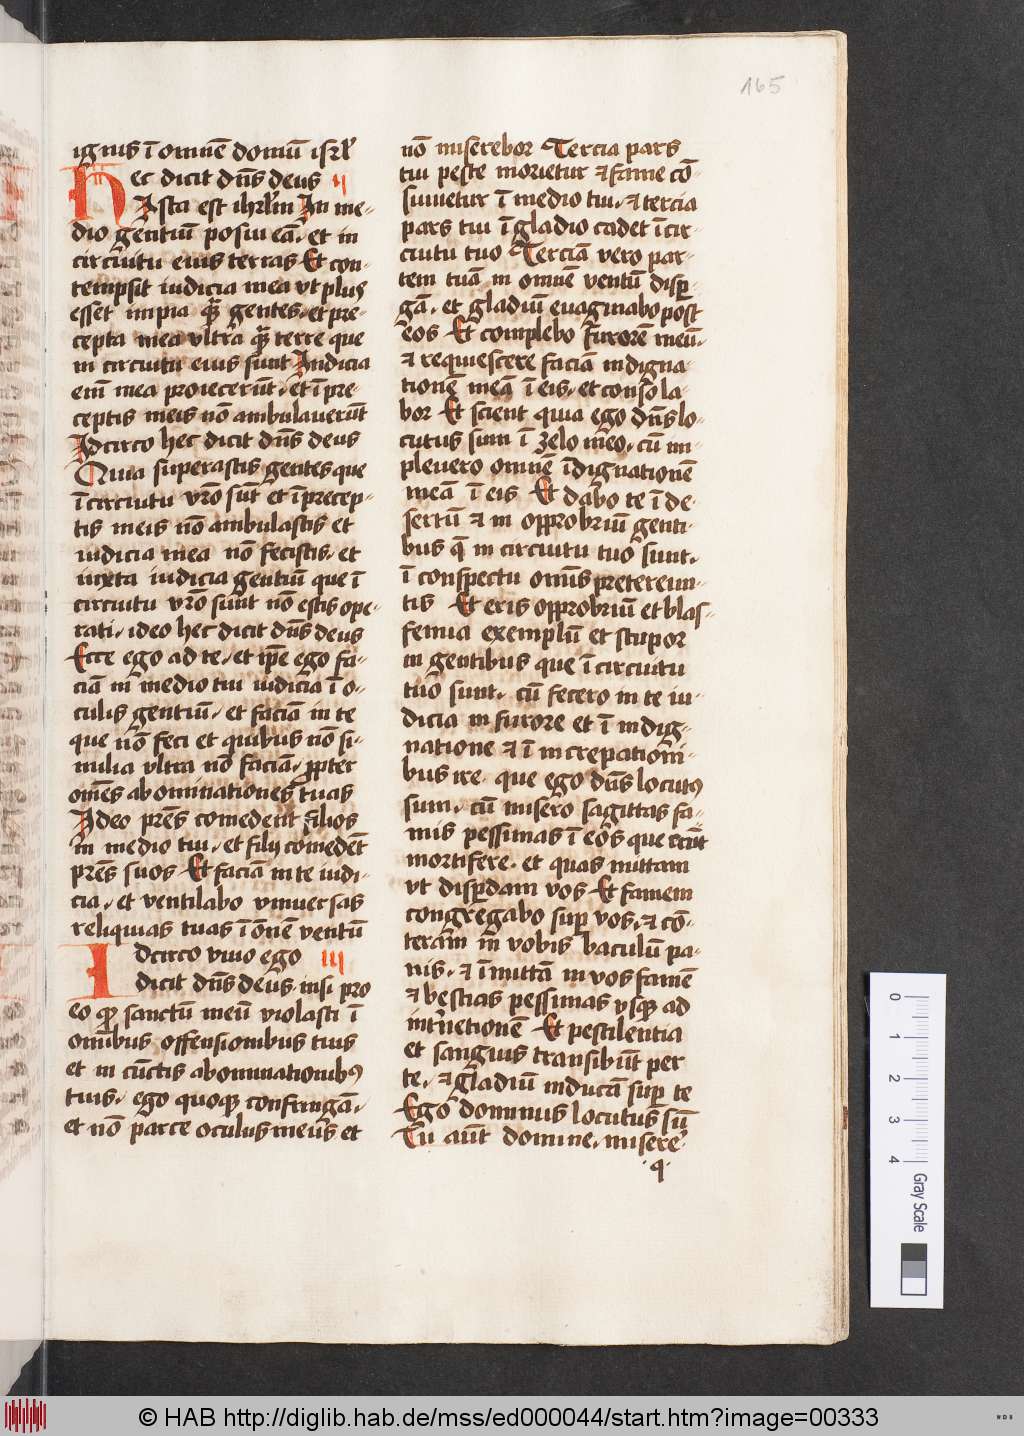 165
ignis ī omnē domū isrl̄
Hec dicit dn̄s deus ij
Ista est ihrl̄m In me-
dio gentiū posui eā. et in
circuitu eius terras Et con-
tempsit iudicia mea vt plus
esset impia q̄ȝ gentes. et pre-
cepta mea vltra q̄ȝ terre que
in circuitu eius sunt Iudicia
em̄ mea proiecerūt. et ī pre-
ceptis meis nō ambulauerūt
Idcirco hec dicit dn̄s deus
Quia superastis gentes que
ī circuitu vr̄o sūt et ī precep-
tis meis nō ambulastis et
iudicia mea nō fecistis. et
iuxta iudicia gentiū que ī
circuitu vr̄o sunt nō estis ope-
rati. ideo hec dicit dn̄s deus
Ecce ego ad te. et ip̄e ego fa-
ciā in medio tui iudicia ī o-
culis gentiū. et faciā in te
que nō feci et quibus nō si-
milia vltra nō faciā. ꝓpter
om̄es abominationes tuas
Ideo pr̄es comedent filios
in medio tui. et filij comedēt
pr̄es suos Et faciā in te iudi-
cia. et ventilabo vniuersas
reliquias tuas ī om̄ē ventū
Idcirco viuo ego iij
dicit dn̄s deus. nisi pro
eo ꝙ sanctū meū violasti ī
omībus offensionibus tuis
et in cūctis abominationibꝯ
tuis. ego quoqȝ confringā.
et nō parcet oculus meus et
nō miserebor Tercia pars
tui peste morietur ⁊ fame cō-
sumetur ī medio tui. ⁊ tercia
pars tui ī gladio cadet ī cir-
cuitu tuo Terciā vero par-
tem tuā in omnē ventū disꝑ-
gā. et gladiū euaginabo post
eos Et complebo furorē meū.
⁊ requiescere faciā indigna-
tionē meā ī eis. et consola-
bor Et scient quia ego dn̄s lo-
cutus sum ī zelo meo. cū im-
pleuero omnē īdignationē
meā ī eis Et dabo te ī de-
sertū ⁊ in opprobriū genti-
bus q̄ in circuitu tuo sunt.
ī conspectu om̄is pretereun-
tis Et eris opprobriū et blas-
femia exemplū et stupor
in gentibus que ī circuitu
tuo sunt. cū fecero in te iu-
dicia in furore et ī indig-
natione ⁊ ī increpationi-
bus ire. que ego dn̄s locutꝯ
sum. cū misero sagittas fa-
mis pessimas ī eos que erūt
mortifere. et quas mittam
vt disꝑdam vos Et famem
congregabo suꝑ vos. ⁊ cō-
teram in vobis baculū pa-
nis. ⁊ īmittā in vos famē
⁊ bestias pessimas vsqȝ ad
int̄netionē Et pestilentia
et sanguis transibūt per
te. ⁊ gladiū inducā suꝑ te
Ego dominus locutus sū
Tu aūt domine. miserere
·q·
0 1 2 3 4 Gray Scale
© HAB http://diglib.hab.de/mss/ed000044/start.htm?image=00333